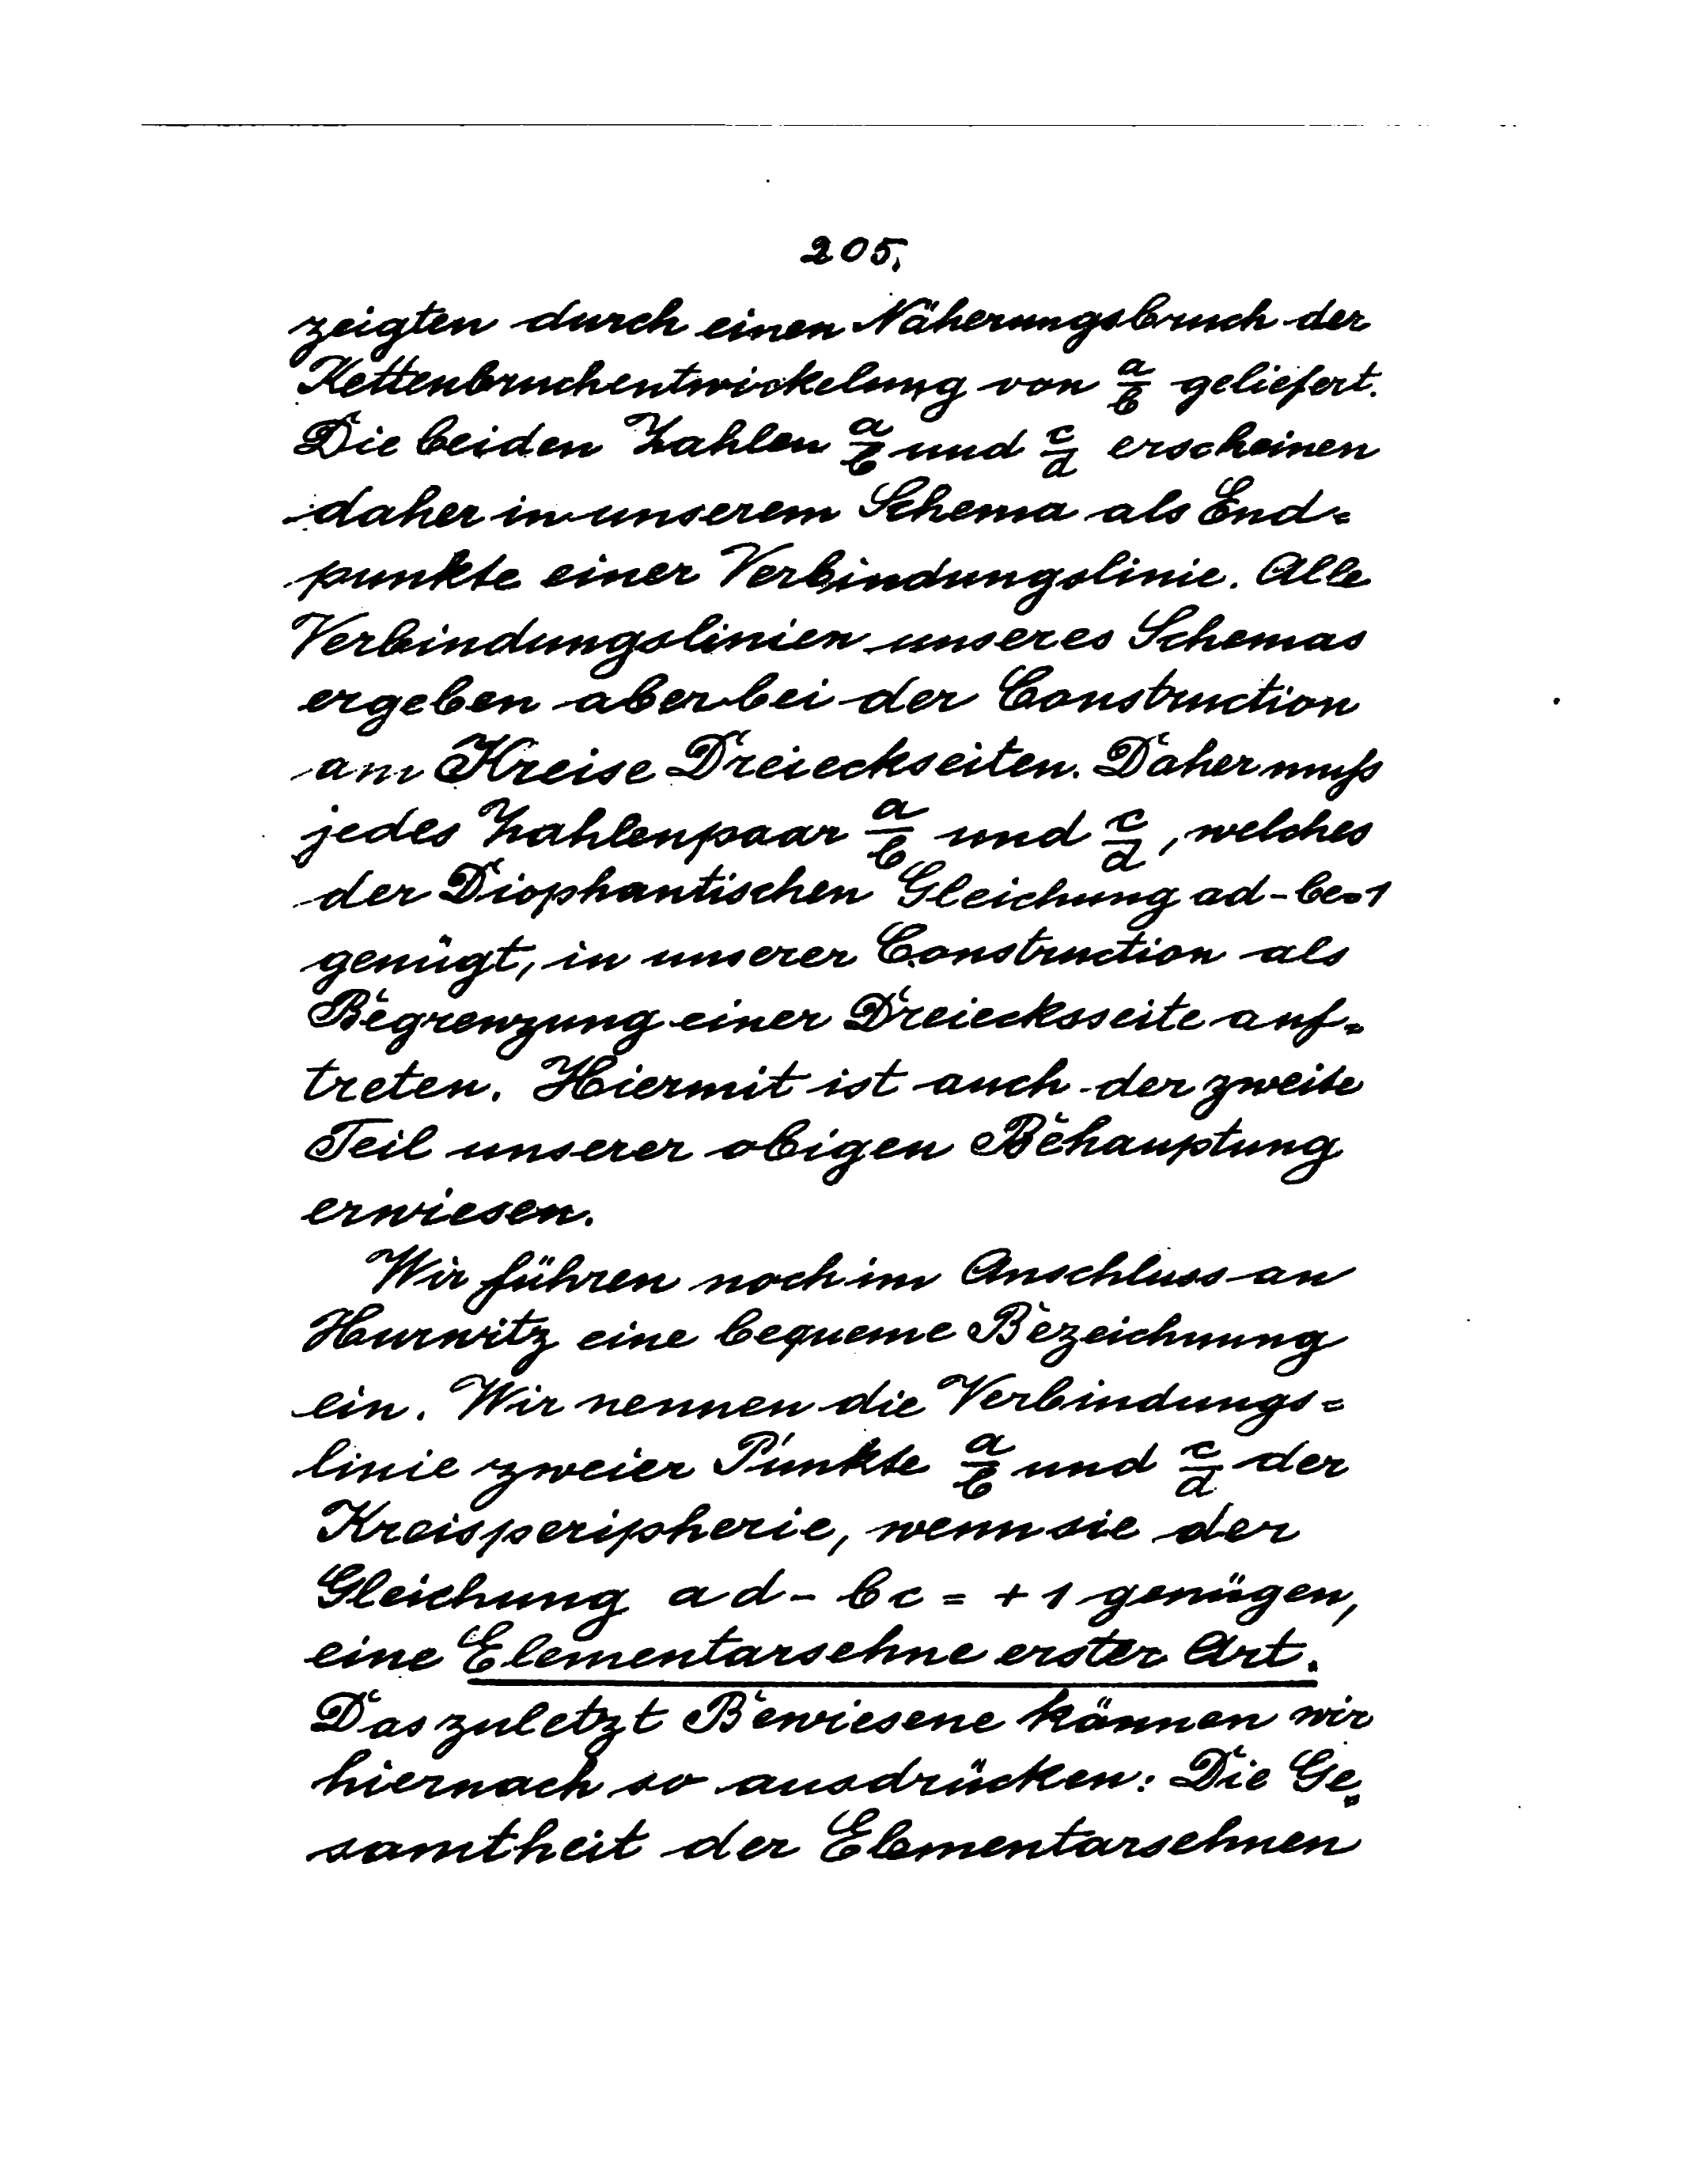 205.
zeigten durch einen Näherungsbruch der
Kettenbruchentwickelung von a/b geliefert.
Die beiden Zahlen a/b und c/d erscheinen
daher in unserem Schema als End=
punkte einer Verbindungslinie. Alle
Verbindungslinien unseres Schemas
ergeben aber bei der Construction
am Kreise Dreieckseiten. Daher muß
jedes Zahlenpaar a/b und c/d, welches
der Diophantischen Gleichung ad-bc=1
genügt, in unserer Construction als
Begrenzung einer Dreiecksseite auf=
treten. Hiermit ist auch der zweite
Teil unserer obigen Behauptung
erwiesen.
Wir führen noch im Anschluss an
Hurwitz eine bequeme Bezeichnung
ein. Wir nennen die Verbindungs=
linie zweier Punkte a/b und c/d der
Kreisperipherie, wenn sie der
Gleichung ad - bc = +1 genügen,
eine Elementarsehne erster Art.
Das zuletzt Bewiesene können wir
hiernach so ausdrücken: Die Ge=
samtheit der Elementarsehnen